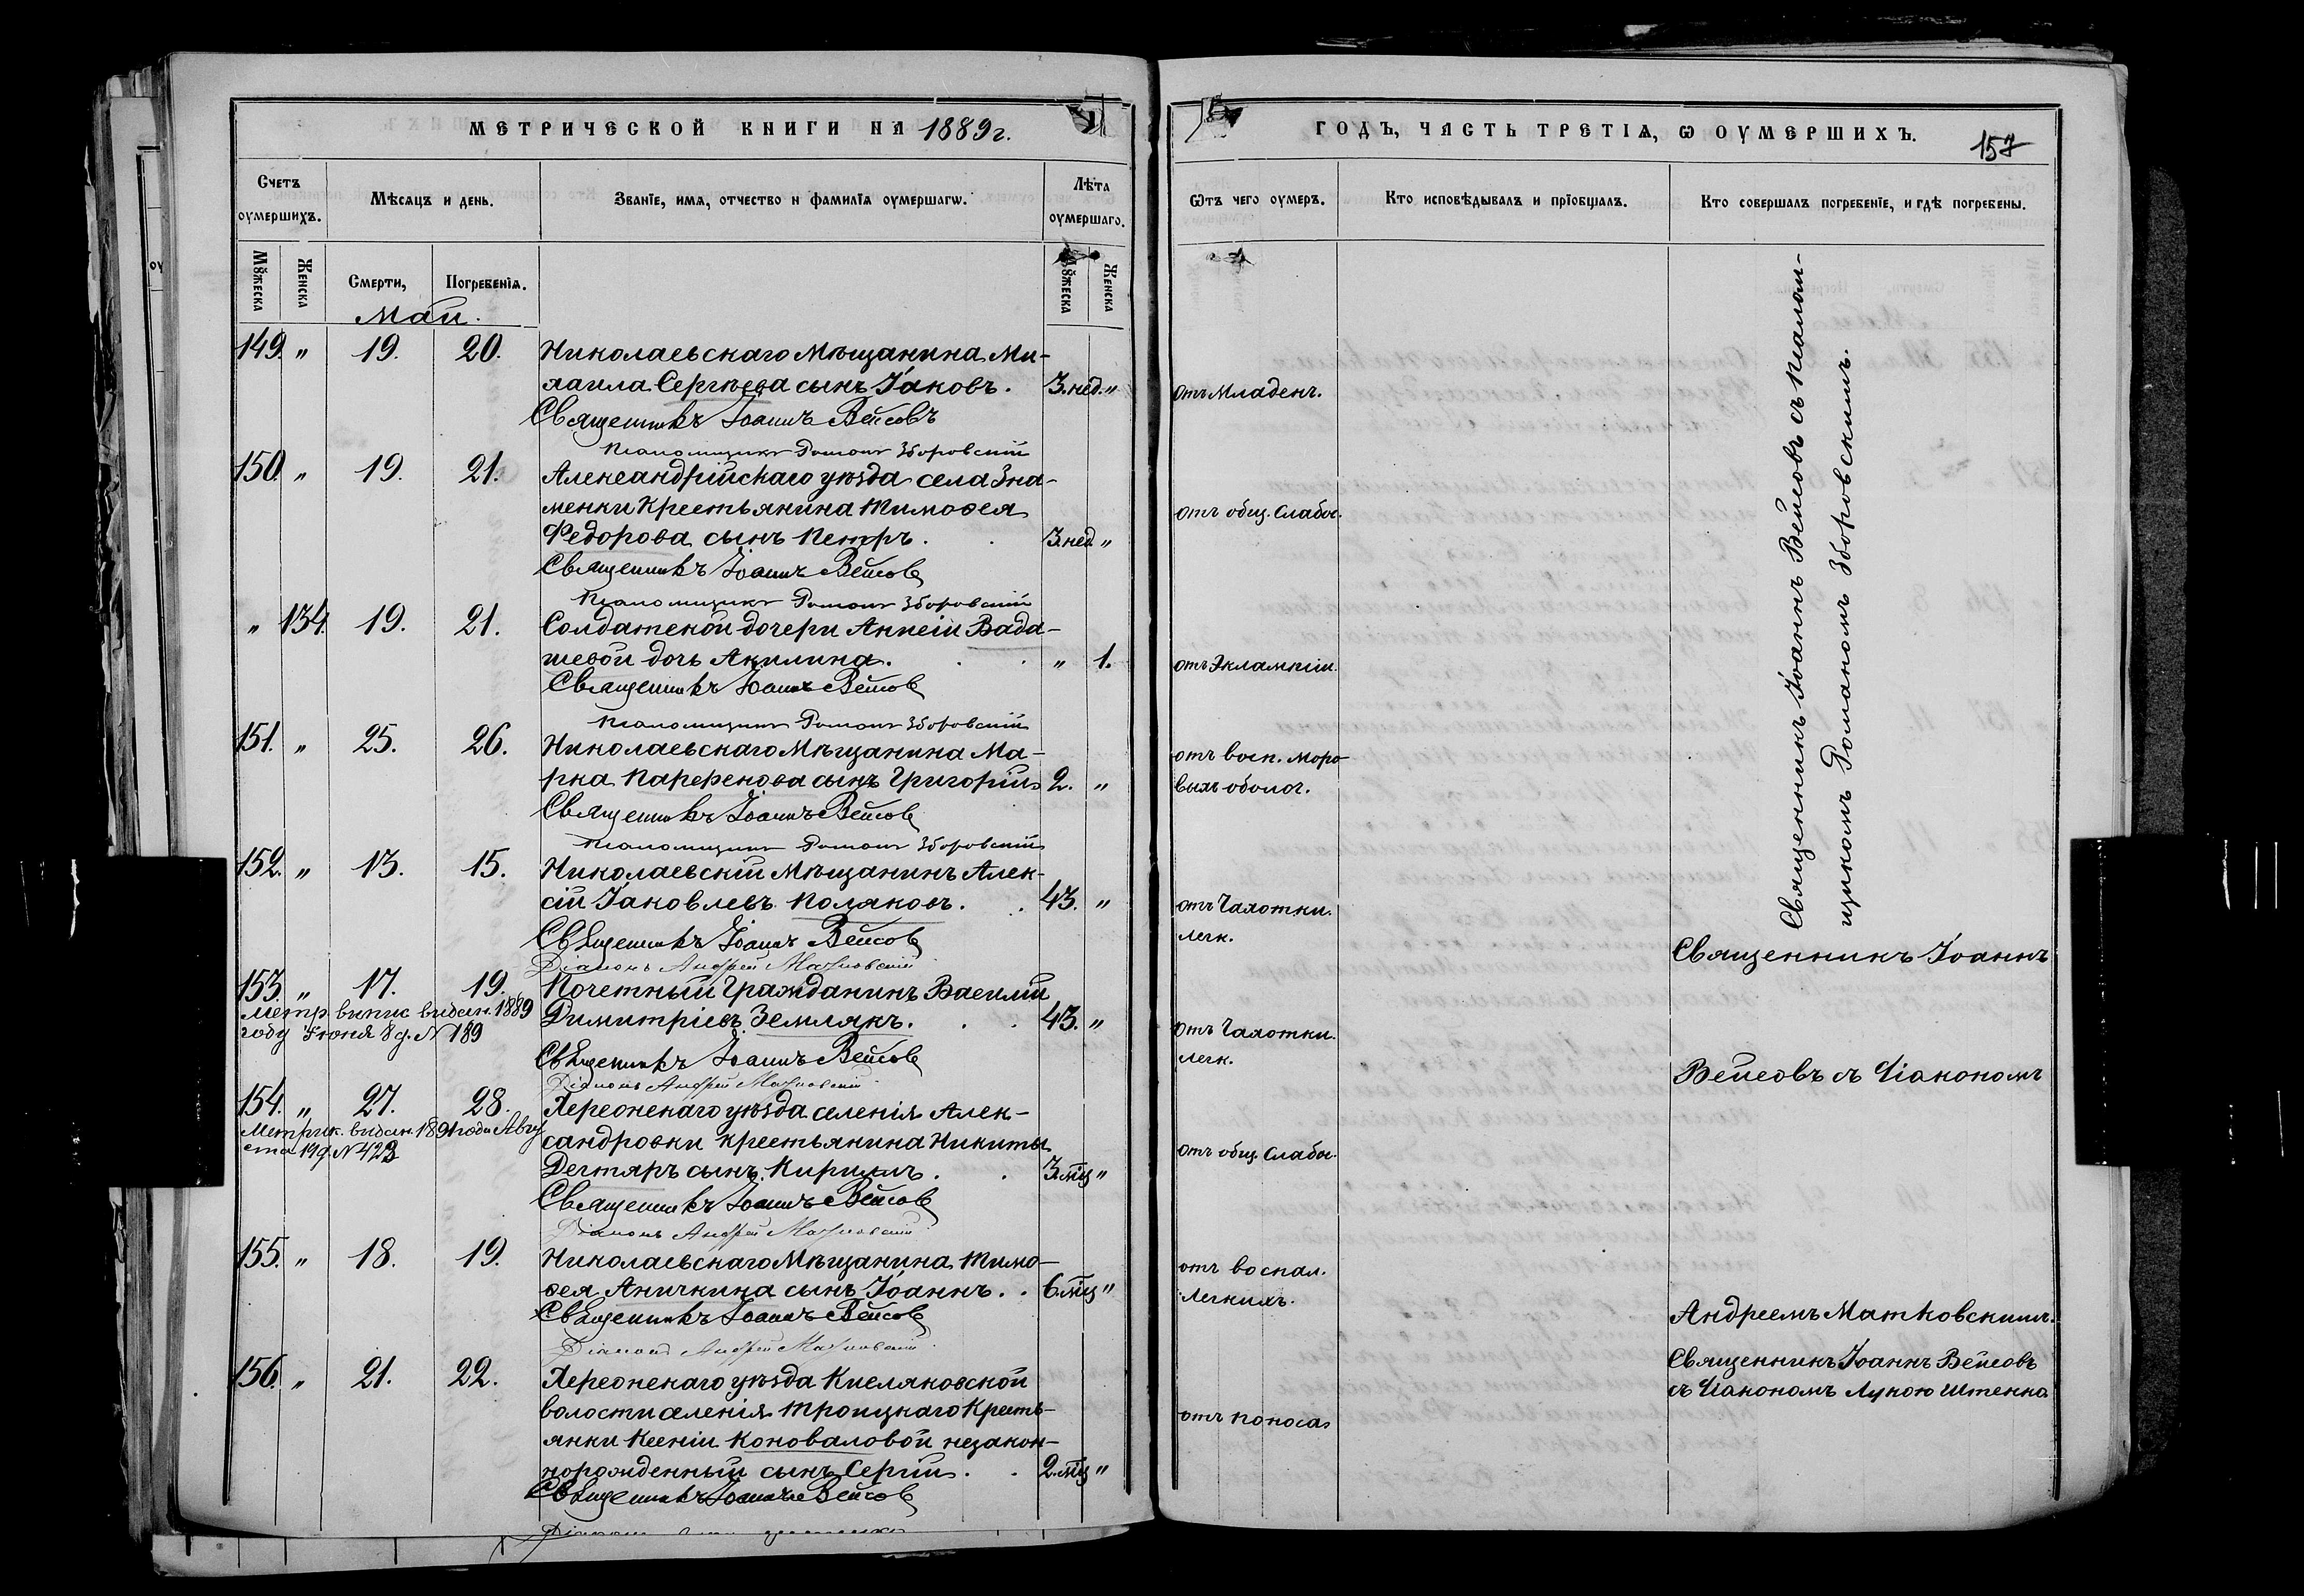 МЕТРИЧЕСКОЙ КНИГИ НА 1889 г.
Счетъ оумершихъ.
Мѣсяцъ и день.
Званїе, имя, отчество и фамилїя оумершагѡ.
Лѣта оумершаго.
Мꙋжеска
Женска
Смерти,
Погребенїя.
Мꙋжеска
Женска
Май.
149. " 19. 20. Николаевскаго Мѣщанина Ми-
хаила Сергѣева сынъ Іаковъ. 3.нед. "
Священникъ Іоаннъ Вейсовъ
Псаломщикъ Романъ Зборовскій
150. " 19. 21. Александрійскаго уѣзда села Зна-
менки Крестьянина Тимоѳея
Федорова сынъ Петръ. 3.нед. "
Священникъ Іоаннъ Вейсовъ
Псаломщикъ Романъ Зборовскій
" 134. 19. 21. Солдатской дочери Анисіи
дочь Акилина. " 1.
Священникъ Іоаннъ Вейсовъ
Псаломщикъ Романъ Зборовскій
151. " 25. 26. Николаевскаго Мѣщанина Ма-
рка Парфенова сынъ Григорій 2. "
Священникъ Іоаннъ Вейсовъ
Псаломщикъ Романъ Зборовскій
152. " 13. 15. Николаевскій Мѣщанинъ Алек-
сій Іаковлевъ Поляковъ. 43. "
Священникъ Іоаннъ Вейсовъ
Діаконъ Андрей Матковскій
153. " 17. 19. Почетный Гражданинъ Василій
Димитріевъ Землякъ. 43. "
Метр. выпис выдан. 1889
году Іюня 8 д. № 189
Священникъ Іоаннъ Вейсовъ
Діаконъ Андрей Матковскій
154. " 27. 28. Херсонскаго уѣзда селенія Алек-
сандровки крестьянина Никиты
Дегтяръ сынъ Кириллъ. 3.мц "
Метрик. выдан. 1891 года Авгу
ста 19 д. № 423
Священникъ Іоаннъ Вейсовъ
Діаконъ Андрей Матковскій
155. " 18. 19. Николаевскаго Мѣщанина Тимо-
ѳея Аничкина сынъ Іоаннъ. 6.мц "
Священникъ Іоаннъ Вейсовъ
Діаконъ Андрей Матковскій
156. " 21. 22. Херсонскаго уѣзда Кисляковской
волости селенія Троицкаго Кресть-
янки Ксеніи Коноваловой незакон-
норожденный сынъ Сергій. 2.мц "
Священникъ Іоаннъ Вейсовъ
ГОДЪ, ЧАСТЬ ТРЕТІѦ, Ѡ ОУМЕРШИХЪ.
157
Ѿтъ чего оумеръ.
Кто исповѣдывалъ и прїобщалъ.
Кто совершалъ погребенїе, и гдѣ погребены.
отъ Младенч.
отъ общ. слабос.
отъ Эклампсіи.
отъ восп. мозго
выхъ оболоч.
отъ Чахотки.
легк.
отъ Чахотки.
легк.
отъ общ. слабос.
отъ воспал.
легкихъ.
отъ поноса
Священникъ Іоаннъ Вейсовъ съ Псалом-
щикомъ Романомъ Зборовскимъ.
Священникъ Іоаннъ
Вейсовъ съ Діакономъ
Андреемъ Матковскимъ.
Священникъ Іоаннъ Вейсовъ
съ Діакономъ Лукою Штенко